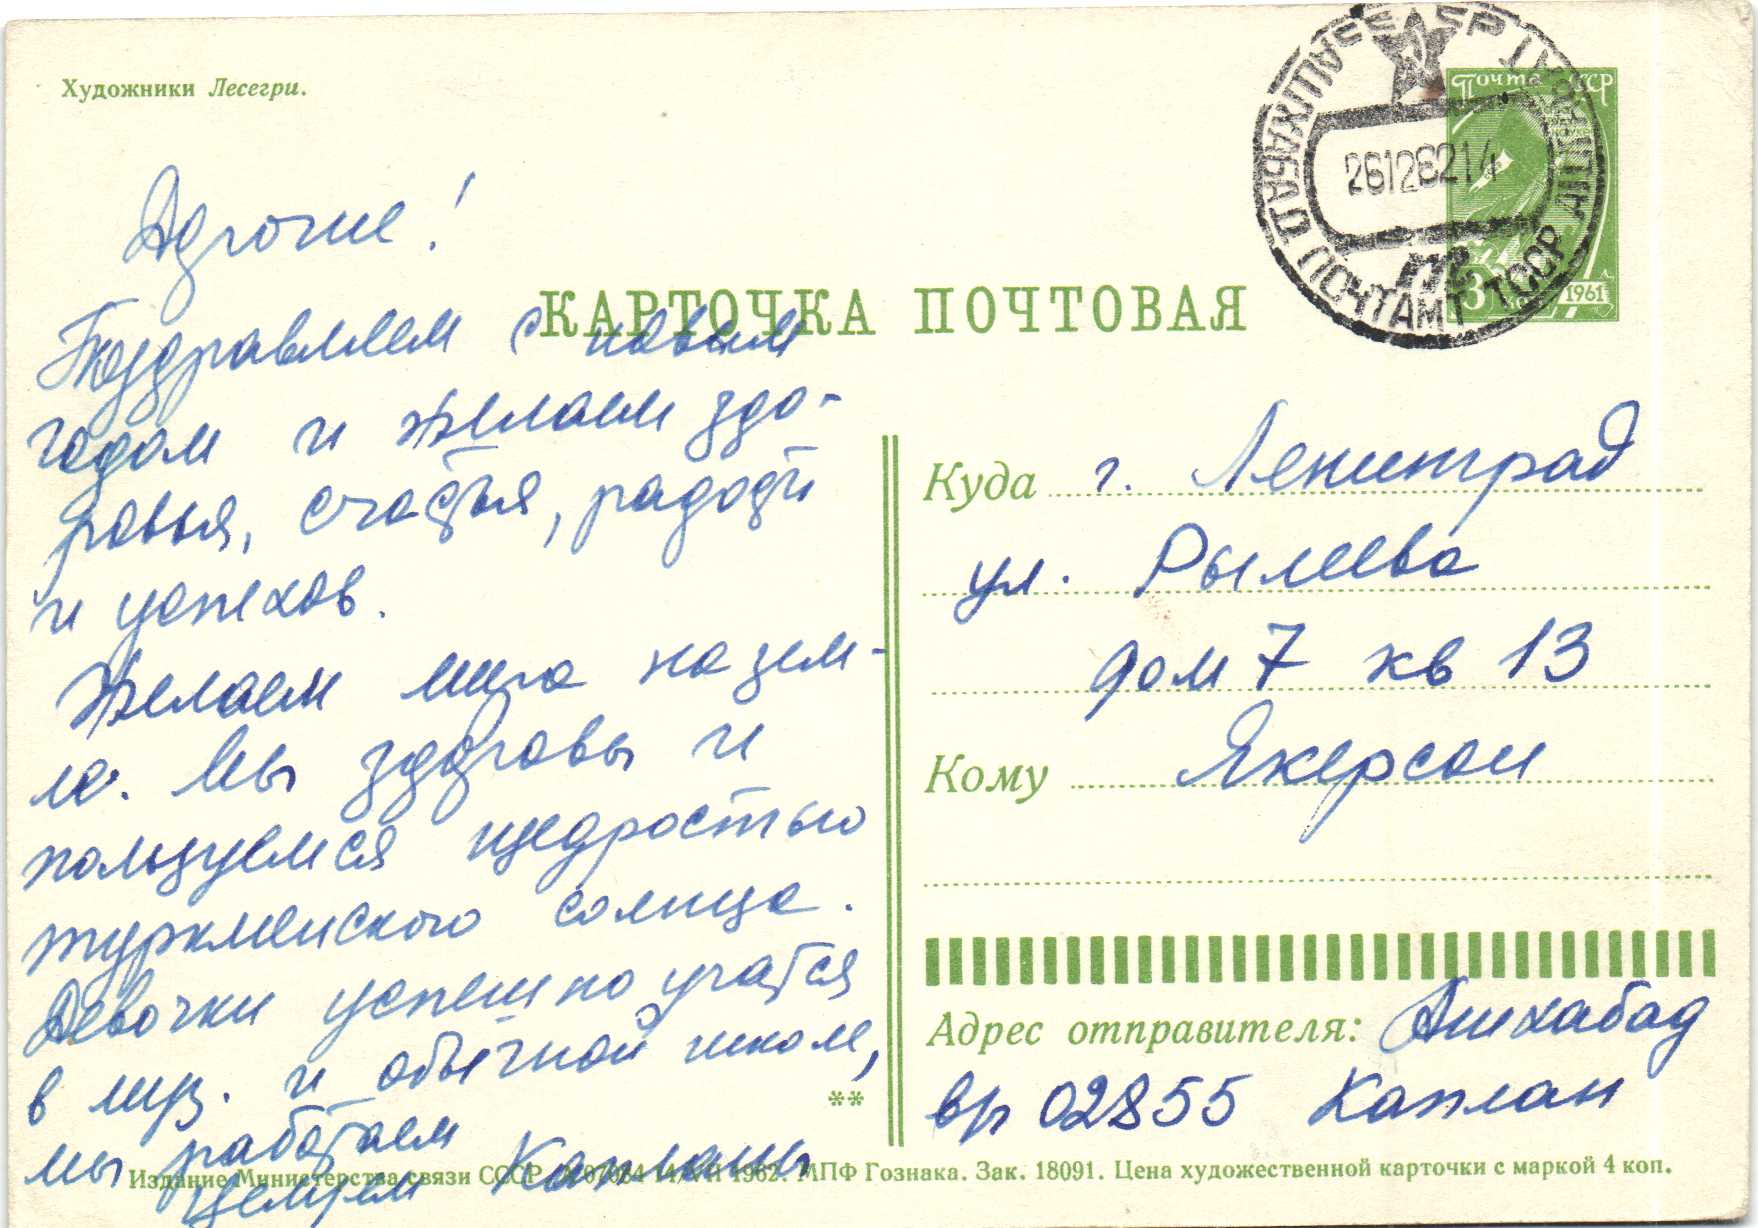 Художники Лесегри.
Почта СССР
3
1961
АШХАБАД ПОЧТАМТ ТССР
26126214
КАРТОЧКА ПОЧТОВАЯ
Дорогие!
Поздравляем с новым
годом и желаем здо-
ровья, счастья, радости
и успехов.
Желаем мира на зем-
ле. Мы здоровы и
пользуемся щедростью
туркменского солнца.
Девочки успешно учатся
в муз. и обычной школе,
мы работаем
Целуем Капланы
**
Куда г. Ленинград
ул. Рылеева
дом 7 кв 13
Кому Якерсон
Адрес отправителя: Ашхабад
вр 02855 Каплан
Издание Министерства связи СССР. А 07084 14/VII 1962. МПФ Гознака. Зак. 18091. Цена художественной карточки с маркой 4 коп.